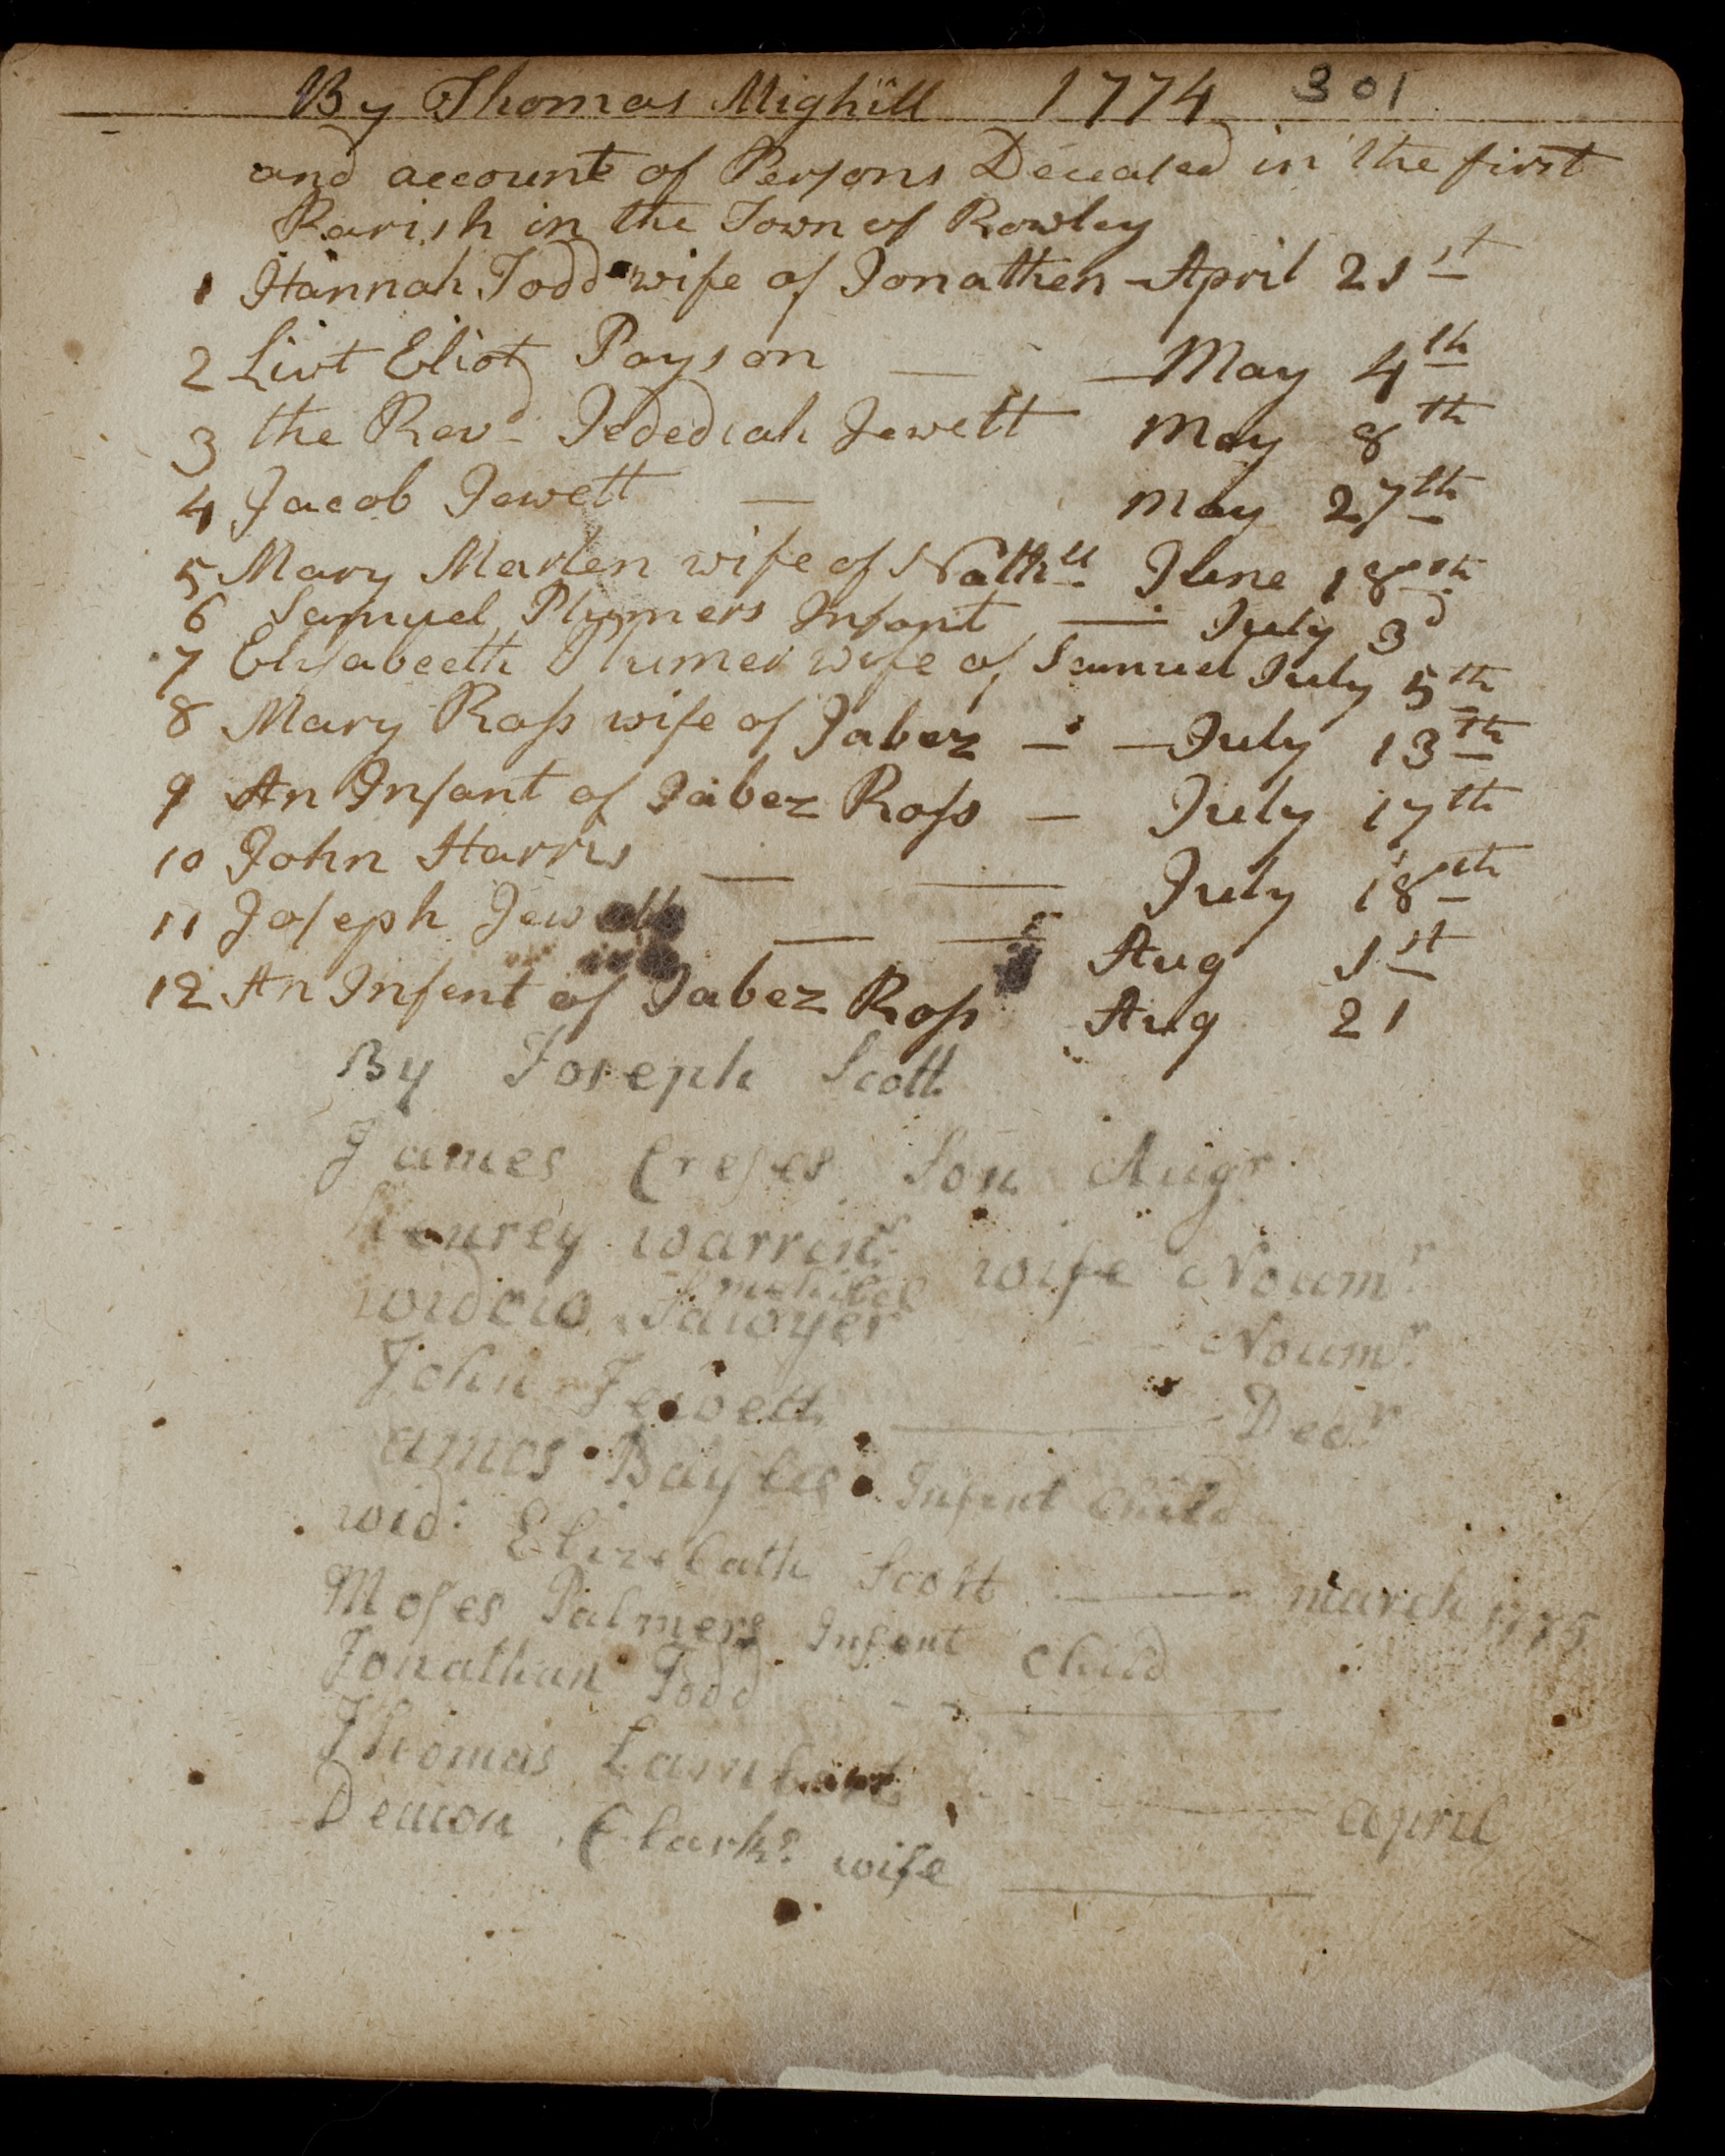 By Thomas Mighill 1774 301
and account of Persons Deceased in the first
Parish in the Town of Rowley
1 Hannah Todd wife of Jonathen - April 21st
2 Livt Eliot Payson — — May 4th
3 the Revd Jedediah Jewett May 8th
4 Jacob Jewett — May 27th
5 Mary Marten wife of Nathll June 18th
6 Samuel Plumers Infant — July 3d
7 Elisabeeth Plumer wife of Samuel July 5th
8 Mary Ross wife of Jabez — — July 13th
9 An Infant of Jabez Ross — July 17th
10 John Harris — — July 18th
11 Joseph Jewett — — Aug 1st
12 An Infent of Jabez Ross Aug 21
By Joseph Scott
James Son Augr
henrey warrens wife Noumr
mehitbel
widow Sawyer Noumr
John Jewett — Decr
amos Bayles Infent Child
wid: Elizebath Scott — march 1775
Moses Palmers Infent Child
Jonathan Todd —
Thomas Lambert — april
Deacon Clarks wife —